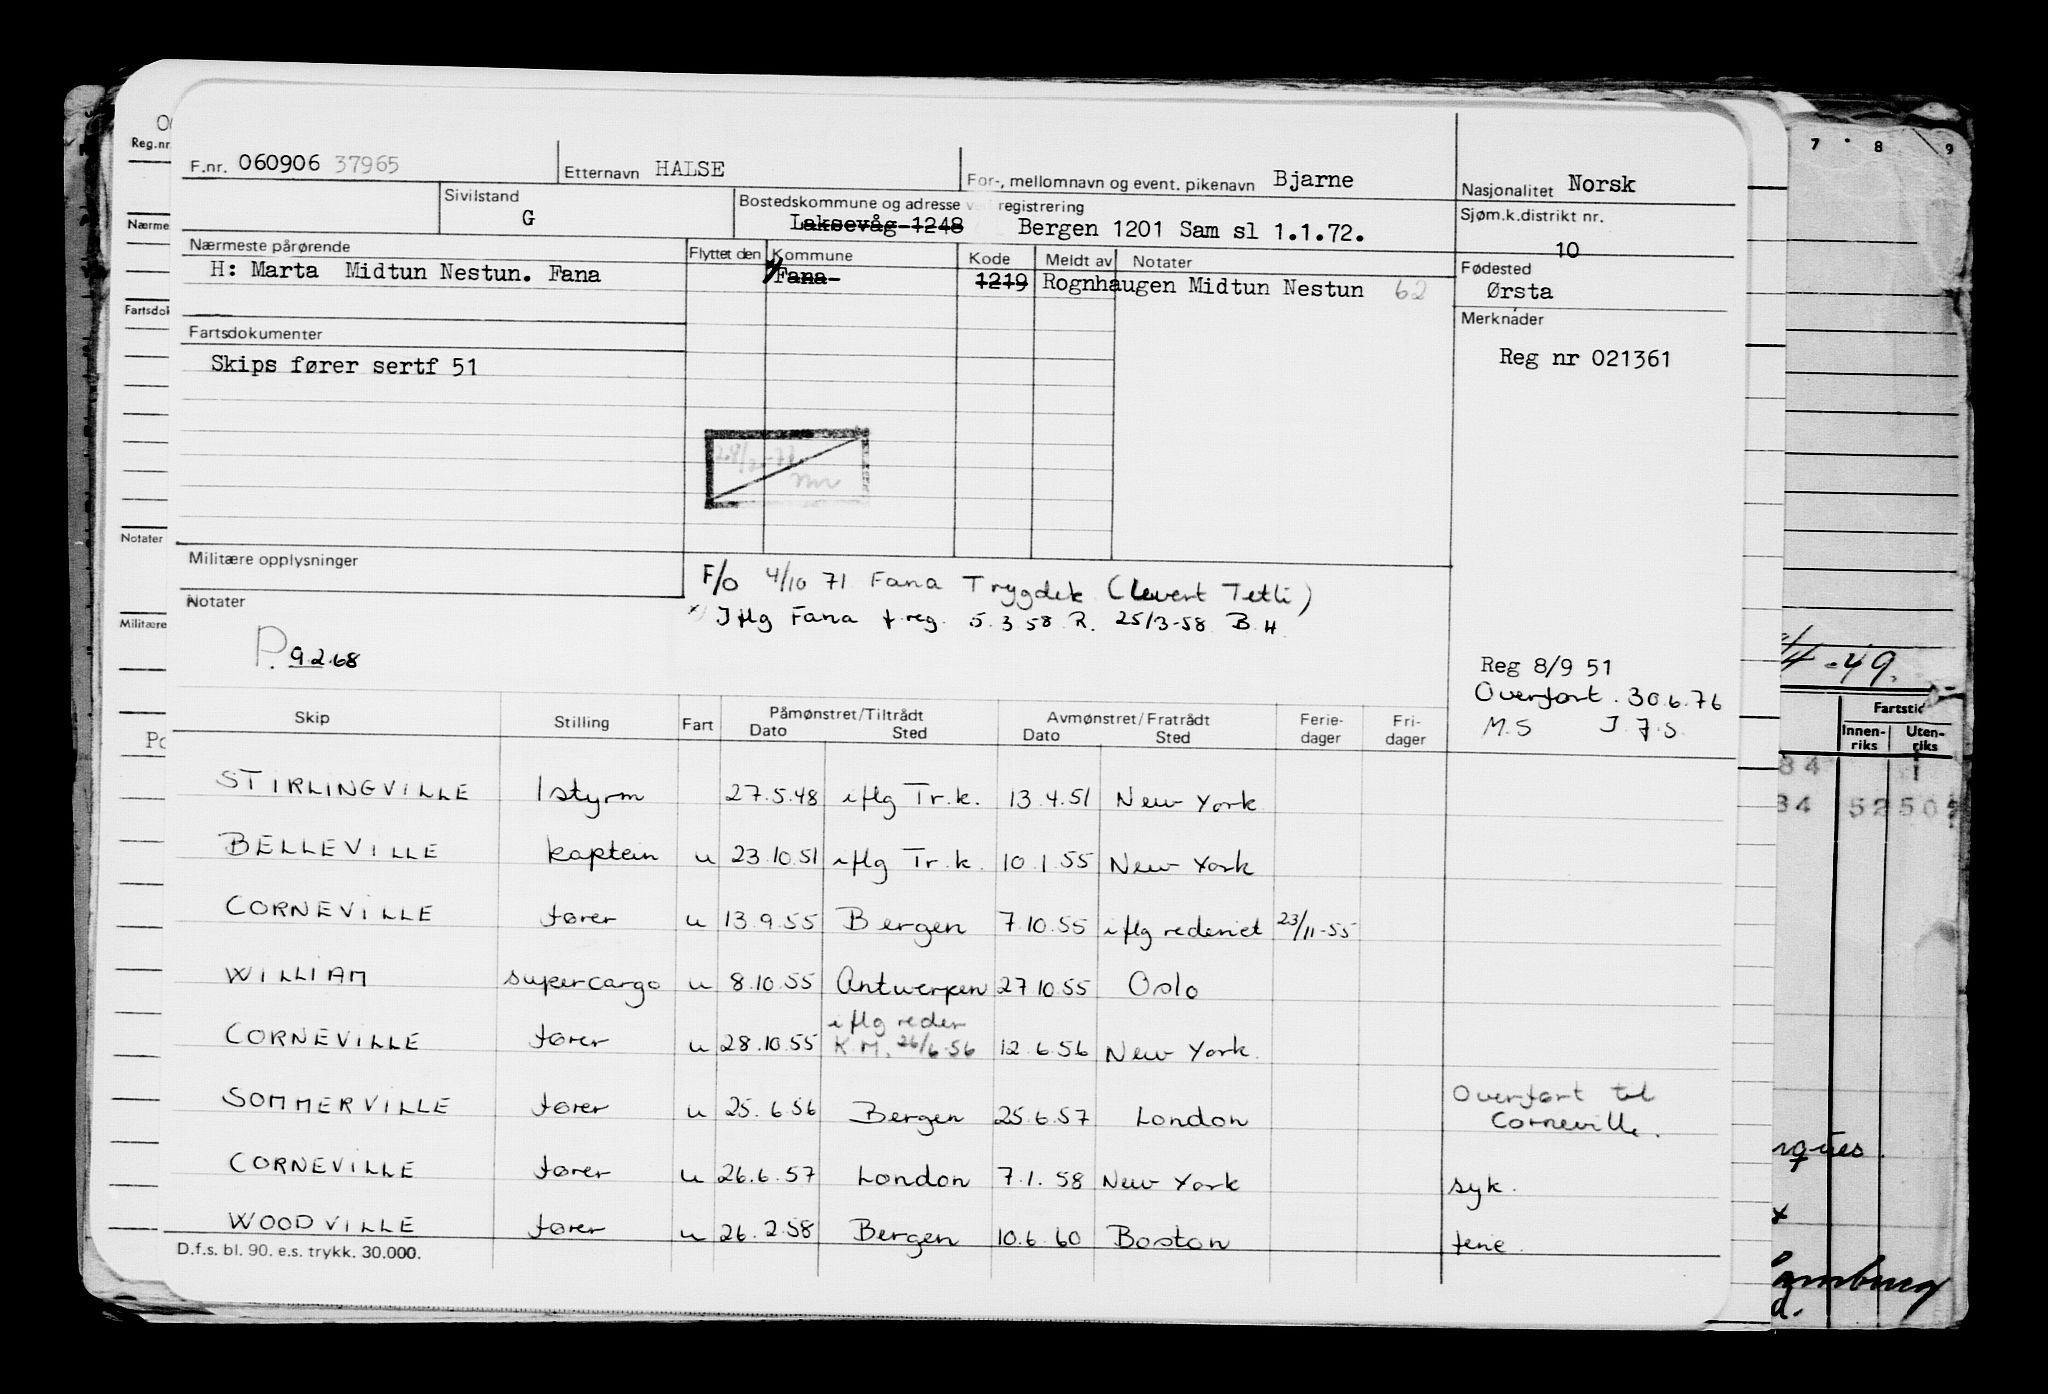 F.nr. 060906 37965 Etternavn HALSE For-, mellomnavn og event. pikenavn Bjarne Nasjonalitet Norsk
Sivilstand G Bostedskommune og adresse registrering Sjøm.k.distrikt nr. 10
Laksevåg 1248 Bergen 1201 Sam sl 1.1.72.
Nærmeste pårørende Flyttet den Kommune Kode Meldt av Notater Fødested
H: Marta Midtun Nestun. Fana Fana 1219 Rognhaugen Midtun Nestun 62 Ørsta
Fartsdokumenter Merknader
Skips fører sertf 51 Reg nr 021361
Militære opplysninger
F/o 4/10 71 Fana Trygdek (levert Tetli)
Notater
Iflg Fana f.reg. 5.3.58 R. 25/3-58 B.H.
P. 9.2.68
Reg 8/9 51
Overført. 30.6.76
M.S J.F.S.
Skip Stilling Fart Påmønstret/Tiltrådt Avmønstret/Fratrådt Ferie- Fri-
Dato Sted Dato Sted dager dager
STIRLINGVILLE 1styrm 27.5.48 iflg Tr.k. 13.4.51 New York
BELLEVILLE kaptein u 23.10.51 iflg Tr.k. 10.1.55 New York
CORNEVILLE fører u 13.9.55 Bergen 7.10.55 iflg rederiet 23/11-55
WILLIAM supercargo u 8.10.55 Antwerpen 27.10.55 Oslo
iflg reder
CORNEVILLE fører u 28.10.55 K.M. 26/6-56 12.6.56 New York.
SOMMERVILLE fører u 25.6.56 Bergen 25.6.57 London Overført til
Corneville.
CORNEVILLE fører u 26.6.57 London 7.1.58 New York syk.
WOODVILLE fører u 26.2.58 Bergen 10.6.60 Boston ferie.
D.f.s. bl. 90. e.s. trykk. 30.000.
Reg.nr
Nærme
Fartsdok
Notater
Militære
Po
7 8 9
/4-49.
Fartstid
Innen- Uten-
riks riks
84 1
34 52 50